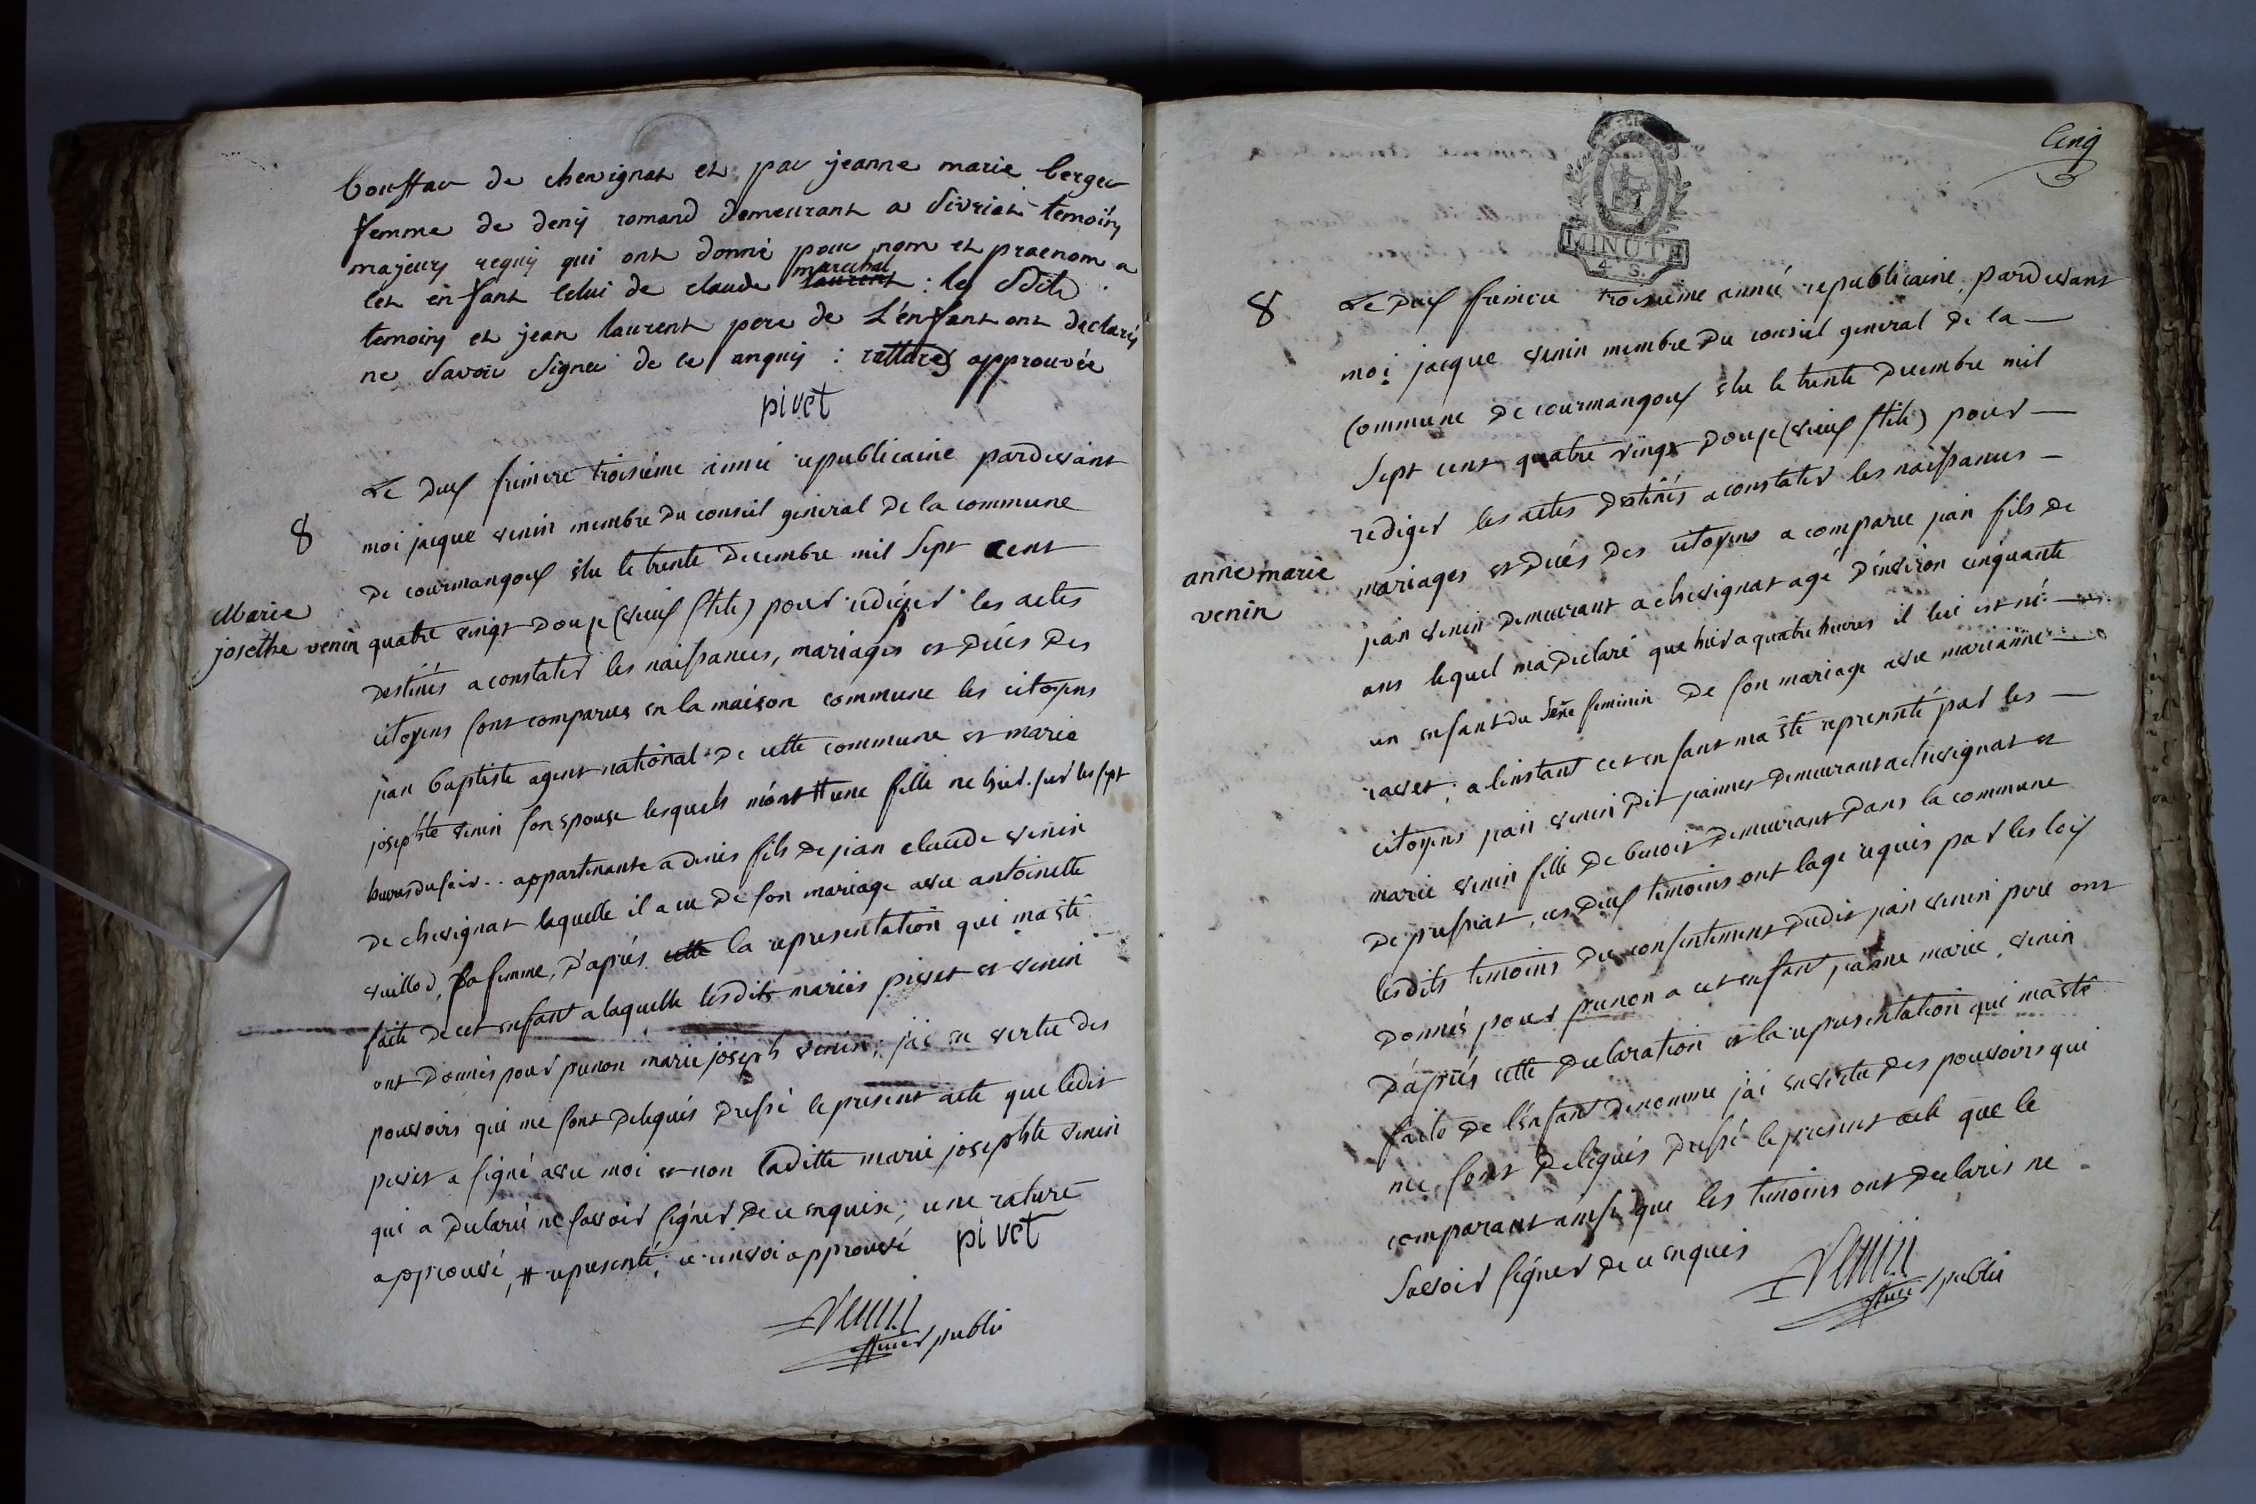 bouffar de chevignat et par jeanne marie berger
femme de deny romand demeurant a Sivriat temoiny
majeury requy qui ont donné pour nom et praenom a
cet enfant celui de claude laurent marechal : les sdits
temoiny et jean laurent pere de L'enfant ont declaréz
ne savoir signer de ce enquiy : ratture approuvée
pivet
Le deux frimere troisiéme année republicaine pardevant
8
moi jacque venin membre du conseil general de la commune
de courmangoux élu le trente decembre mil sept cent
Marie
josethe venin
quatre vingt douze (vieux stile) pour rediger les actes
destinés a constater les naissances, mariages et décés des
citoyens sont comparus en la maison commune les citoyens
jean baptiste agent national de cette commune et marie
josephte venin son epouse lesquels m'ont # une fille ne hier sur les sept
heures du soir .. appartenante a denis fils de jean claude venin
de chevignat laquelle il a eue de son mariage avec antoinette
vuillod, sa femme, d'aprés cette la representation qui ma été
faite de cet enfant a laquelle lesdits mariés pivet et venin
ont donnés pour prenon marie joseph venin, j'ai en vertu des
pouvoirs qui me sont delegués dressé le présent acte que ledit
pivet a signé avec moi et non laditte marie josephte venin
qui a declaré ne savoir signer de ce enquise, une rature
approuvé, # representé, ce renvoi approuvé pivet
Venin
officier public
Cinq
MINUTE
4. S.
8
Le deux frimere troisiéme année republicaine, pardevant
moi jacque venin membre du conseil general de la
commune de courmangoux élu le trente decembre mil
sept cent quatre vingt douze (vieux stile) pour
rediger les actes destinés a constater les naissances
mariages et décés des citoyens a comparu jean fils de
anne marie
venin
jean venin demeurant a chevignat agé d'environ cinquante
ans lequel ma declaré que hier a quatre heures il lui est né
un enfant du sexe feminin de son mariage avec marianne
ravet, a l'instant cet enfant ma été representé par les
citoyens jean venin dit jannet demeurant a chevignat et
marie venin fille de benoit demeurant dans la commune
de pressiat, ces deux temoins ont lage requis par les loix
lesdits temoins du consentement dudit jean venin pere ont
donnés pour prenon a cet enfant jeanne marie venin
d'aprés cette declaration et la representation qui ma été
faite de l'enfant denommé j'ai en vertu des pouvoirs qui
me sont delegués dressé le present acte que le
comparant ainsi que les temoins ont declarés ne
savoir signer de ce enquis
Venin
officier public